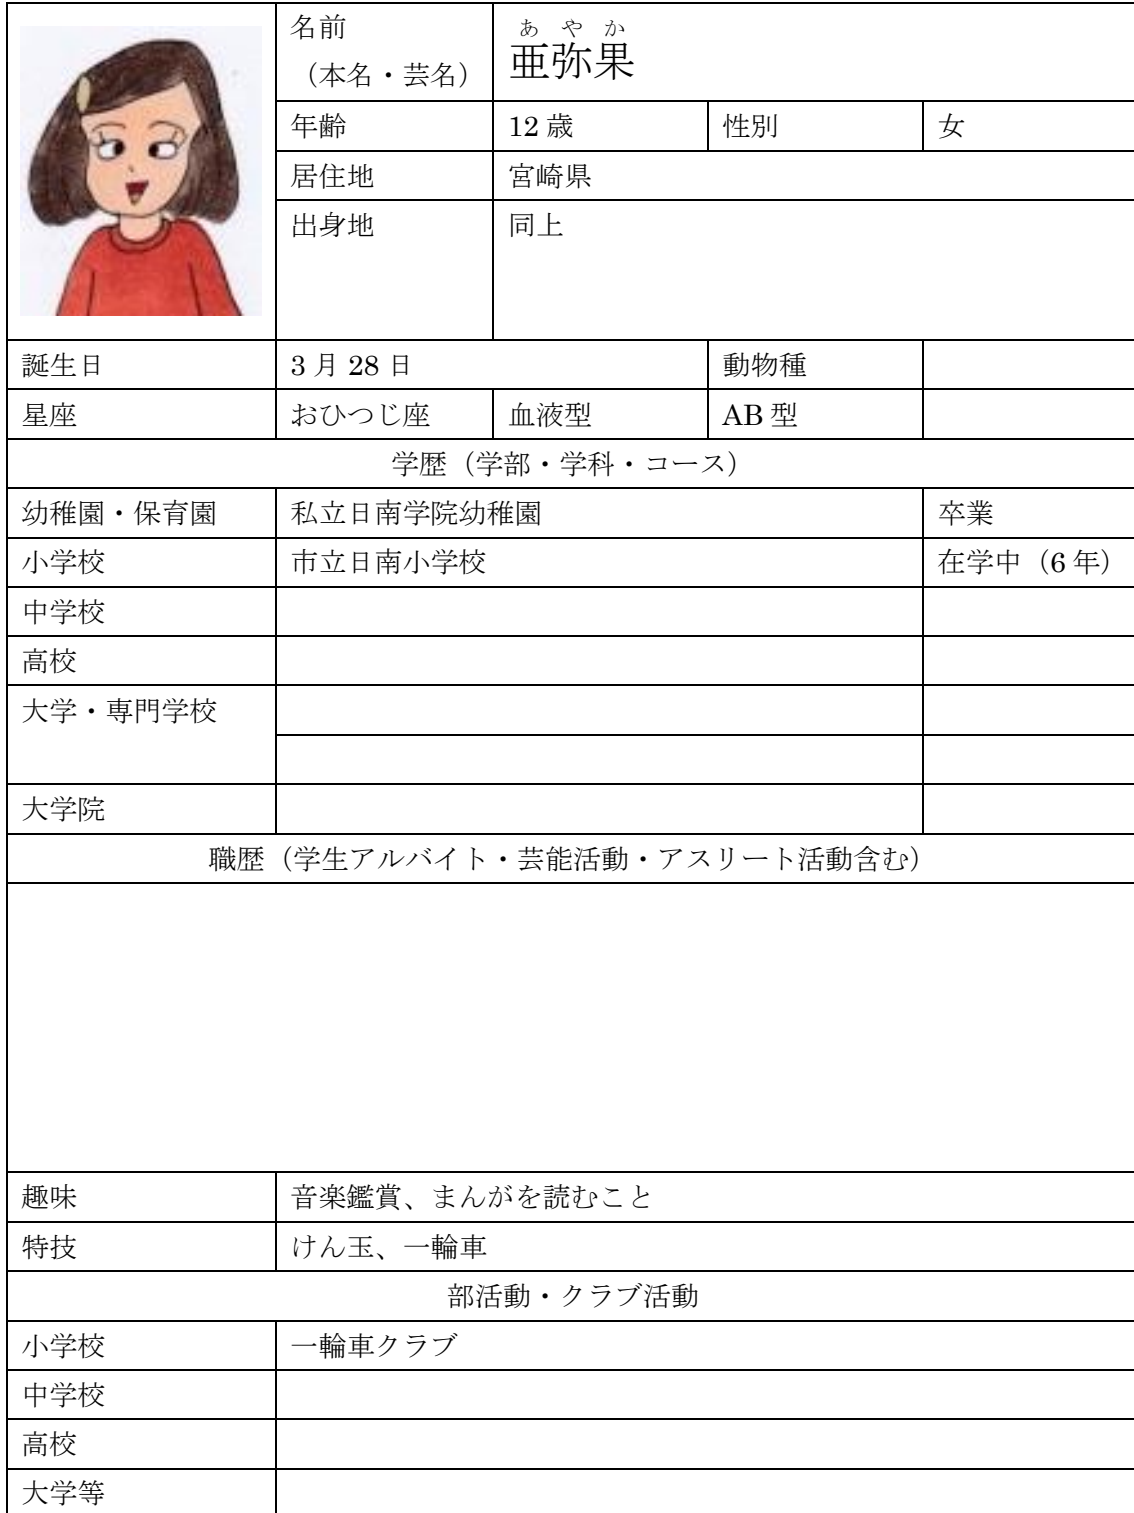 名前
あやか
（本名・芸名）
亜弥果
年齢 12歳 性別 女
居住地 宮崎県
出身地 同上
誕生日 3月28日 動物種
星座 おひつじ座 血液型 AB型
学歴（学部・学科・コース）
幼稚園・保育園 私立日南学院幼稚園 卒業
小学校 市立日南小学校 在学中（6年）
中学校
高校
大学・専門学校
大学院
職歴（学生アルバイト・芸能活動・アスリート活動含む）
趣味 音楽鑑賞、まんがを読むこと
特技 けん玉、一輪車
部活動・クラブ活動
小学校 一輪車クラブ
中学校
高校
大学等